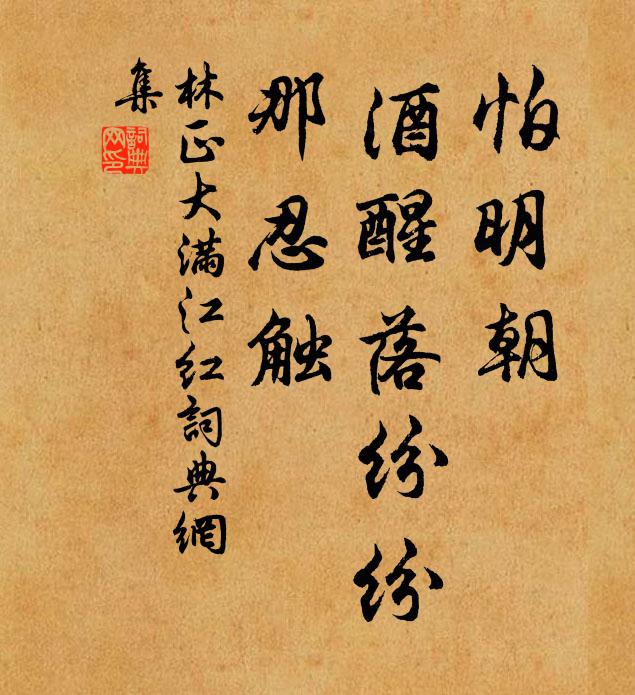 怕明朝
酒醒落纷纷
那忍触
林正大满江红詞典網
集
詞典网印